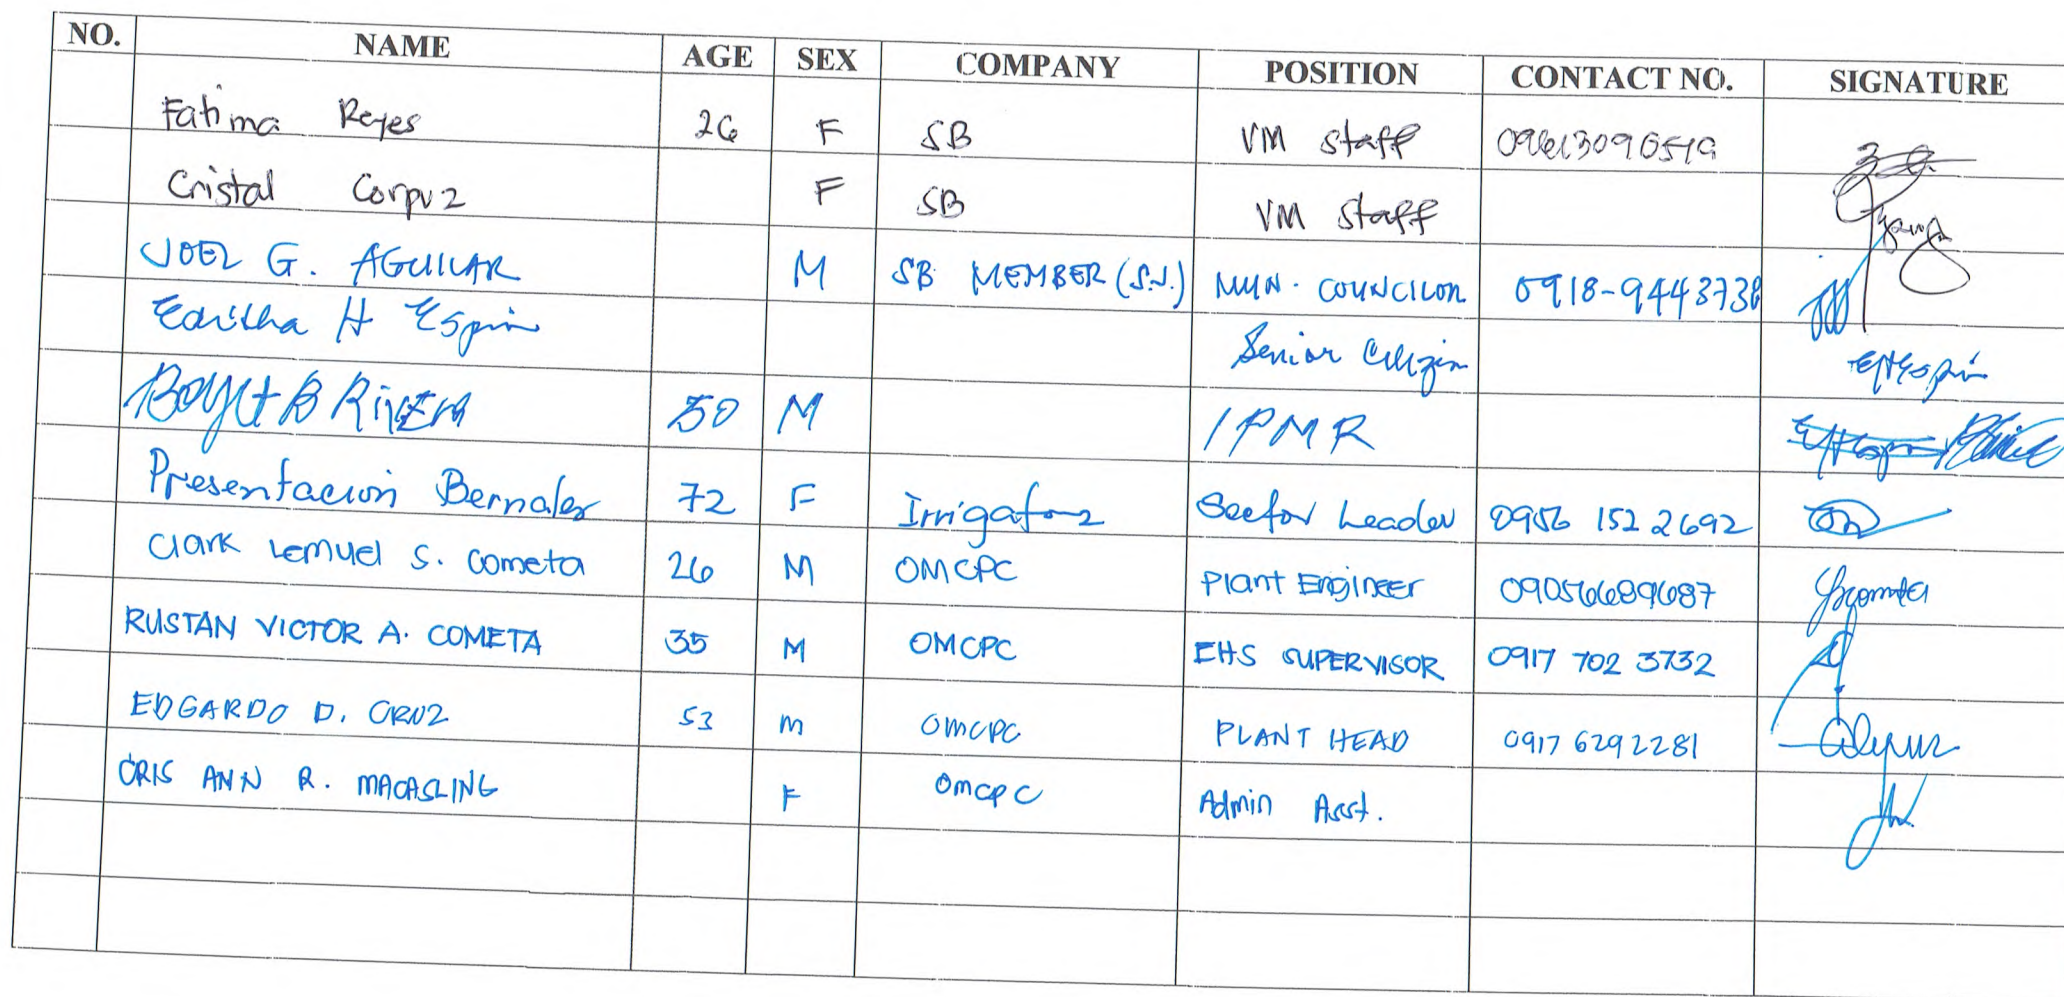 NO. NAME AGE SEX COMPANY POSITION CONTACT NO. SIGNATURE
Fatima Reyes 26 F SB VM Staff
Cristal Corpuz F SB VM Staff
JOEL G. AGUILAR M SB MEMBER (S.J.) MUN. COUNCILOR 0918-9443738
H Espin Senior Citizen
Boyet B Rivera 50 M IPMR
Presentacion Bernales 72 F Irrigators Sector Leader 0956 152 2692
Clark Lemuel S. Cometa 26 M OMCPC Plant Engineer 09056689687
RUSTAN VICTOR A. COMETA 35 M OMCPC EHS SUPERVISOR 0917 702 3732
EDGARDO D. CRUZ 53 M OMCPC PLANT HEAD 0917 6292281
CRIS ANN R. MACASLING F OMCPC Admin Asst.